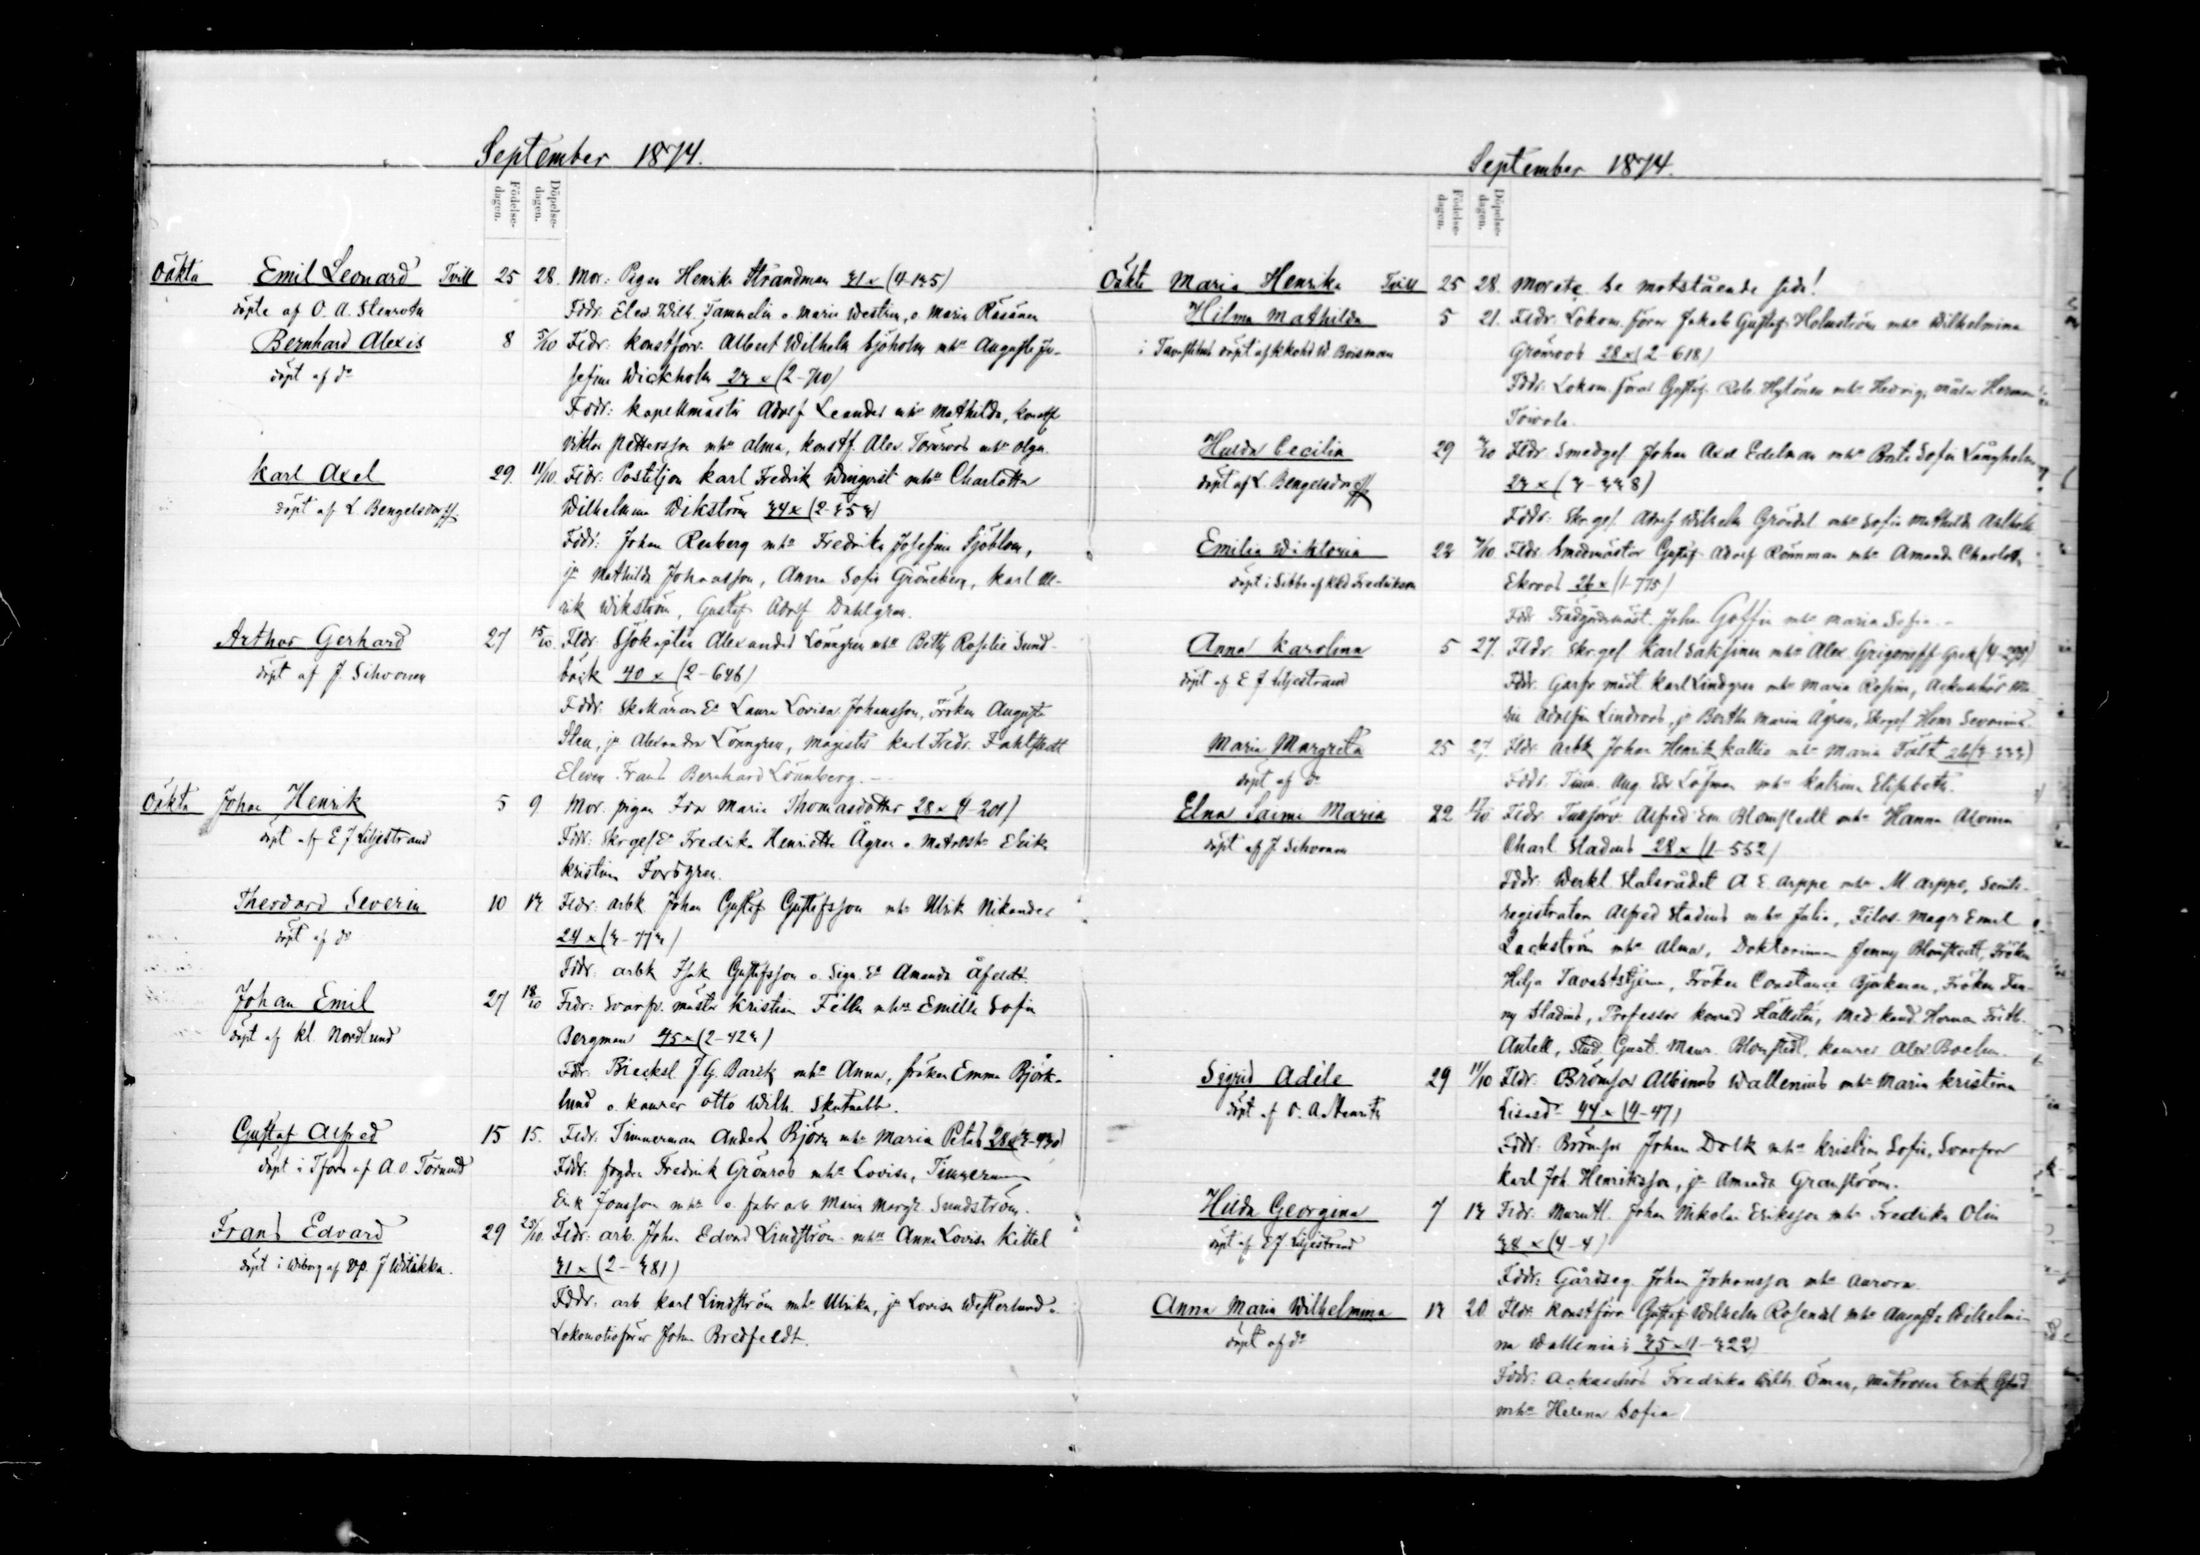 September 1874.
Födelse-
dagen.
Döpelse-
dagen.
Oäkta Emil Leonard Tvill 25 28. Mor: Pigan Henrika Strandman 31 x (4-135)
döpte af O. A. Stenroth Fddr. Elev. Wilh. Tammelin o. Maria Westrin, o. Maria Räsänen
Bernhard Alexis 8 5/10 Fldr: konstförv. Albert Wilhelm Sjöholm mhu Augusta Jo-
döpt af do sefina Wickholm 23 x (2-710)
Fddr: kapellmäster Adolf Leander mhu Mathilda, konstf.
Viktor Pettersson mhu Alma, konstf. Alex. Törnroos mhu Olga.
Karl Axel 29 11/10. Fldr: Postiljon Karl Fredrik Winqvist mhu Charlotta
döpt af L. Bengelsdorff. Wilhelmina Wikström 34 x (2-353)
Fddr: Johan Renberg mhu Fredrika Josefina Sjöblom,
jn Mathilda Johansson, Anna Sofia Gröneberg, Karl Ul-
rik Wikström, Gustaf Adolf Dahlgren.
Arthur Gerhard 27 15/10. Fldr. Sjökapten Alexander Lönngren mhu Betty Rosalie Sund-
döpt af J. Sihvonen bäck 40 x (2-646)
Fddr. Laura Lovisa Johansson, Fröken Augusta
Sten, jn Alexandra Lönngren, Magister Karl Fredr. Fahlstedt
Eleven Frans Bernhard Lönnberg.
Oäkta Johan Henrik 5 9 Mor. pigan Ida Maria Thomasdotter 28 x (4-201)
döpt af E J Liljestrand Fddr: Skrgesäll Fredrika Henrietta Ågren o. Matrosh. Erika
Kristina Forsgren.
Theodord Severin 10 13 Fldr: arbk. Johan Gustaf Gustafsson mhu Ulrik Nikander
döpt af do 24 x (3-773)
Fddr: arbk Isak Gustafsson o. Amanda Åfeldt.
Johan Emil 27 18/10 Fldr: Svarfv. mäster Kristian Felth mhu Emilie Sofia
döpt af Kl. Nordlund Bergman 45 x (2-423)
Fddr J. G. Barck mhu Anna, fröken Emma Björk-
lund o. Kamrer Otto Wilh. Skutnabb.
Gustaf Alfred 15 15. Fldr. Timmerman Anders Björn mhu Maria 28 x (3-930)
döpt i af A. O. Törnudd Fddr: fogden Fredrik Grönroos mhu Lovisa, Timmerman
Erik Jonsson mhu o. fabr. arb. Maria Margr. Sundström.
Frans Edvard 29 25/10. Fldr: arb. Johan Edvard Lindström mhu Anna Lovisa Kittel
döpt i Wiborg af Vp. J Witikka. 31 x (2-381)
Fddr. arb. Karl Lindström mhu Ulrika, jn Lovisa Westerlund o.
Lokomotivförar Johan Bredfeldt.
September 1874.
Födelse-
dagen.
Döpelse-
dagen.
Oäkta Maria Henrika Tvill 25 28. Mor etc. Se motstående sida!
Hilma Mathilda 5 21. Fldr. Lokom. förar Jakob Gustaf Holmström mhu Wilhelmina
i Tavastehus döpt af W. Boisman Grönroos 28 x (2-618)
Fddr. Lokom. förar Gustaf Rob. Hytönen mhu Hedvig,
Toivola.
Hulda Cecilia 29 Fldr Smedges. Johan Axel Edelman mhu Berta Sofia Långholm
döpt af L. Bengelsdorff 23 x (3-338)
Fddr: Skrges. Adolf Wilhelm Gröndal mhu Sofia Mathilda
Emilia Wiktoria 23 Fldr. Smedmäster Gustaf Adolf Rönnman mhu Amanda Charlotta
döpt i Sibbo af Fredrikson Ekroos 26 x (1-775)
Fddr Trädgårdsmäst. Johan mhu Maria Sofia.
Anna Karolina 5 27. Fldr. Skrges Karl Saksinen mhu Alex. Grigoreff
döpt af E J Liljestrand Fddr. Garfv. mäst. Karl Lindgren mhu Maria Rosina,
Adolfina Lindroos, jn Bertha Maria Ågren, Skrges. Henr. Severius
Maria Margreta 25 27. Fldr arbk Johan Henrik Kallio mhu Maria Fält 26 (3-333)
döpt af do Fddr. Timm. Aug. Edv. Löfman mhu Katrina Elisabeth.
Elna Saima Maria 22 Fldr Tullförv. Alfred Em. Blomstedt mhu Hanna
döpt af J Sihvonen Charl Stadius 28 x (1-552)
Fddr. Werkl. Statsrådet A E Arppe mhu M Arppe, Senats-
registratorn Alfred Stadius mhu Julia, Filos. Magr Emil
Lackström mhu Alma, Doktorinnan Jenny Blomstedt, Fröken
Hilja Tavaststjerna, Fröken Constance Björkman, Fröken Fan-
ny Stadius, Professor Konrad Hällsten, Med. Kand. Herman Frith.
Antell, Stud Gust. Maur. Blomstedt, kamrer Alex. Boehm.
Sigrid Adéle 29 11/10 Fldr. Brömsar Albinus Wallenius mhu Maria Kristina
döpt af O. A. Stenroth Lisasd. 44 x (4-47)
Fddr: Brömsar Johan Dolk mhu Kristina Sofia, Svarfvar
Karl Joh. Henriksson, jn Amanda Granström.
Hilda Georgina 7 13 Fldr. Johan Nikolai Eriksson mhu Fredrika Olin
döpt af E J Liljestrand 38 x (4-4)
Fddr: Gårdseg. Johan Johansson mhu Aurora.
Anna Maria Wilhelmina 13 20 Fldr. konstförv. Gustaf Wilhelm Rosendal mhu Augusta Wilhelmi-
döpt af do na Wallenius 35 x (1-322)
Fddr: Fredrika Wilh. Öman, Matrosen Erik Glad
mhu Helena Sofia